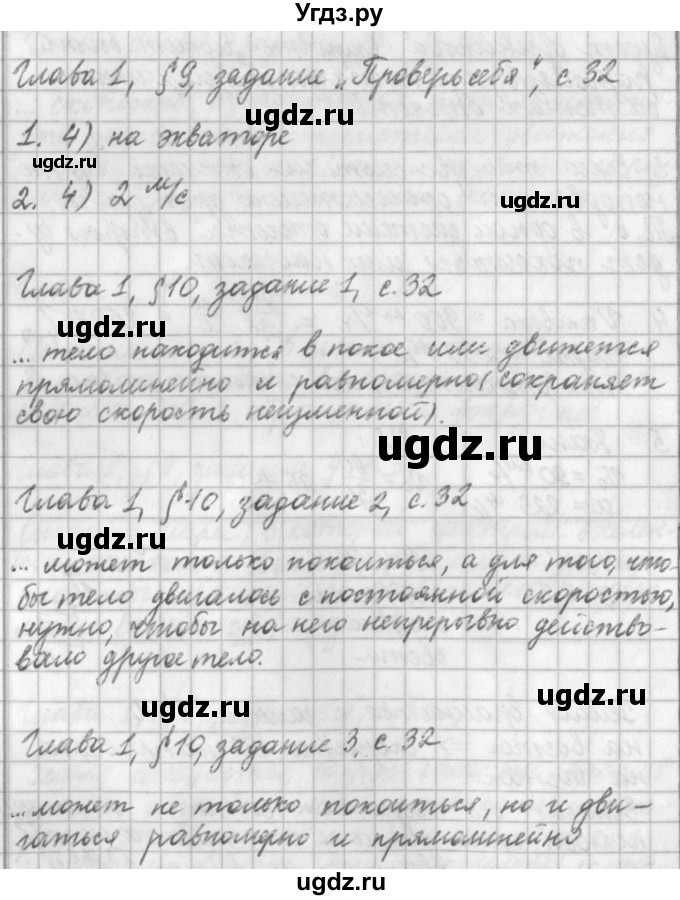 Угдз.ру
Глава 1, § 9, задание „Проверь себя", с. 32
ugdz.ru
1. 4) на экваторе
ugdz.ru
ugdz.ru
2. 4) 2 м/с
Глава 1, § 10, задание 1, с. 32
ugdz.ru
... тело находится в покое или движется
прямолинейно и равномерно (сохраняет
свою скорость неизменной).
ugdz.ru
Глава 1, § 10, задание 2, с. 32
ugdz.ru
... может только покоиться, а для того, что-
бы тело двигалось с постоянной скоростью,
нужно, чтобы на него непрерывно действо-
вало другое тело.
ugdz.ru
ugdz.ru
Глава 1, § 10, задание 3, с. 32
ugdz.ru
... может не только покоиться, но и дви-
гаться равномерно и прямолинейно
ugdz.ru